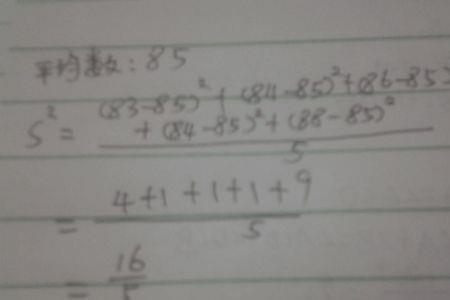 平均数:85
S² = (83-85)²+(84-85)²+(86-85)
+(84-85)²+(88-85)²
5
= 4+1+1+1+9
5
= 16
5